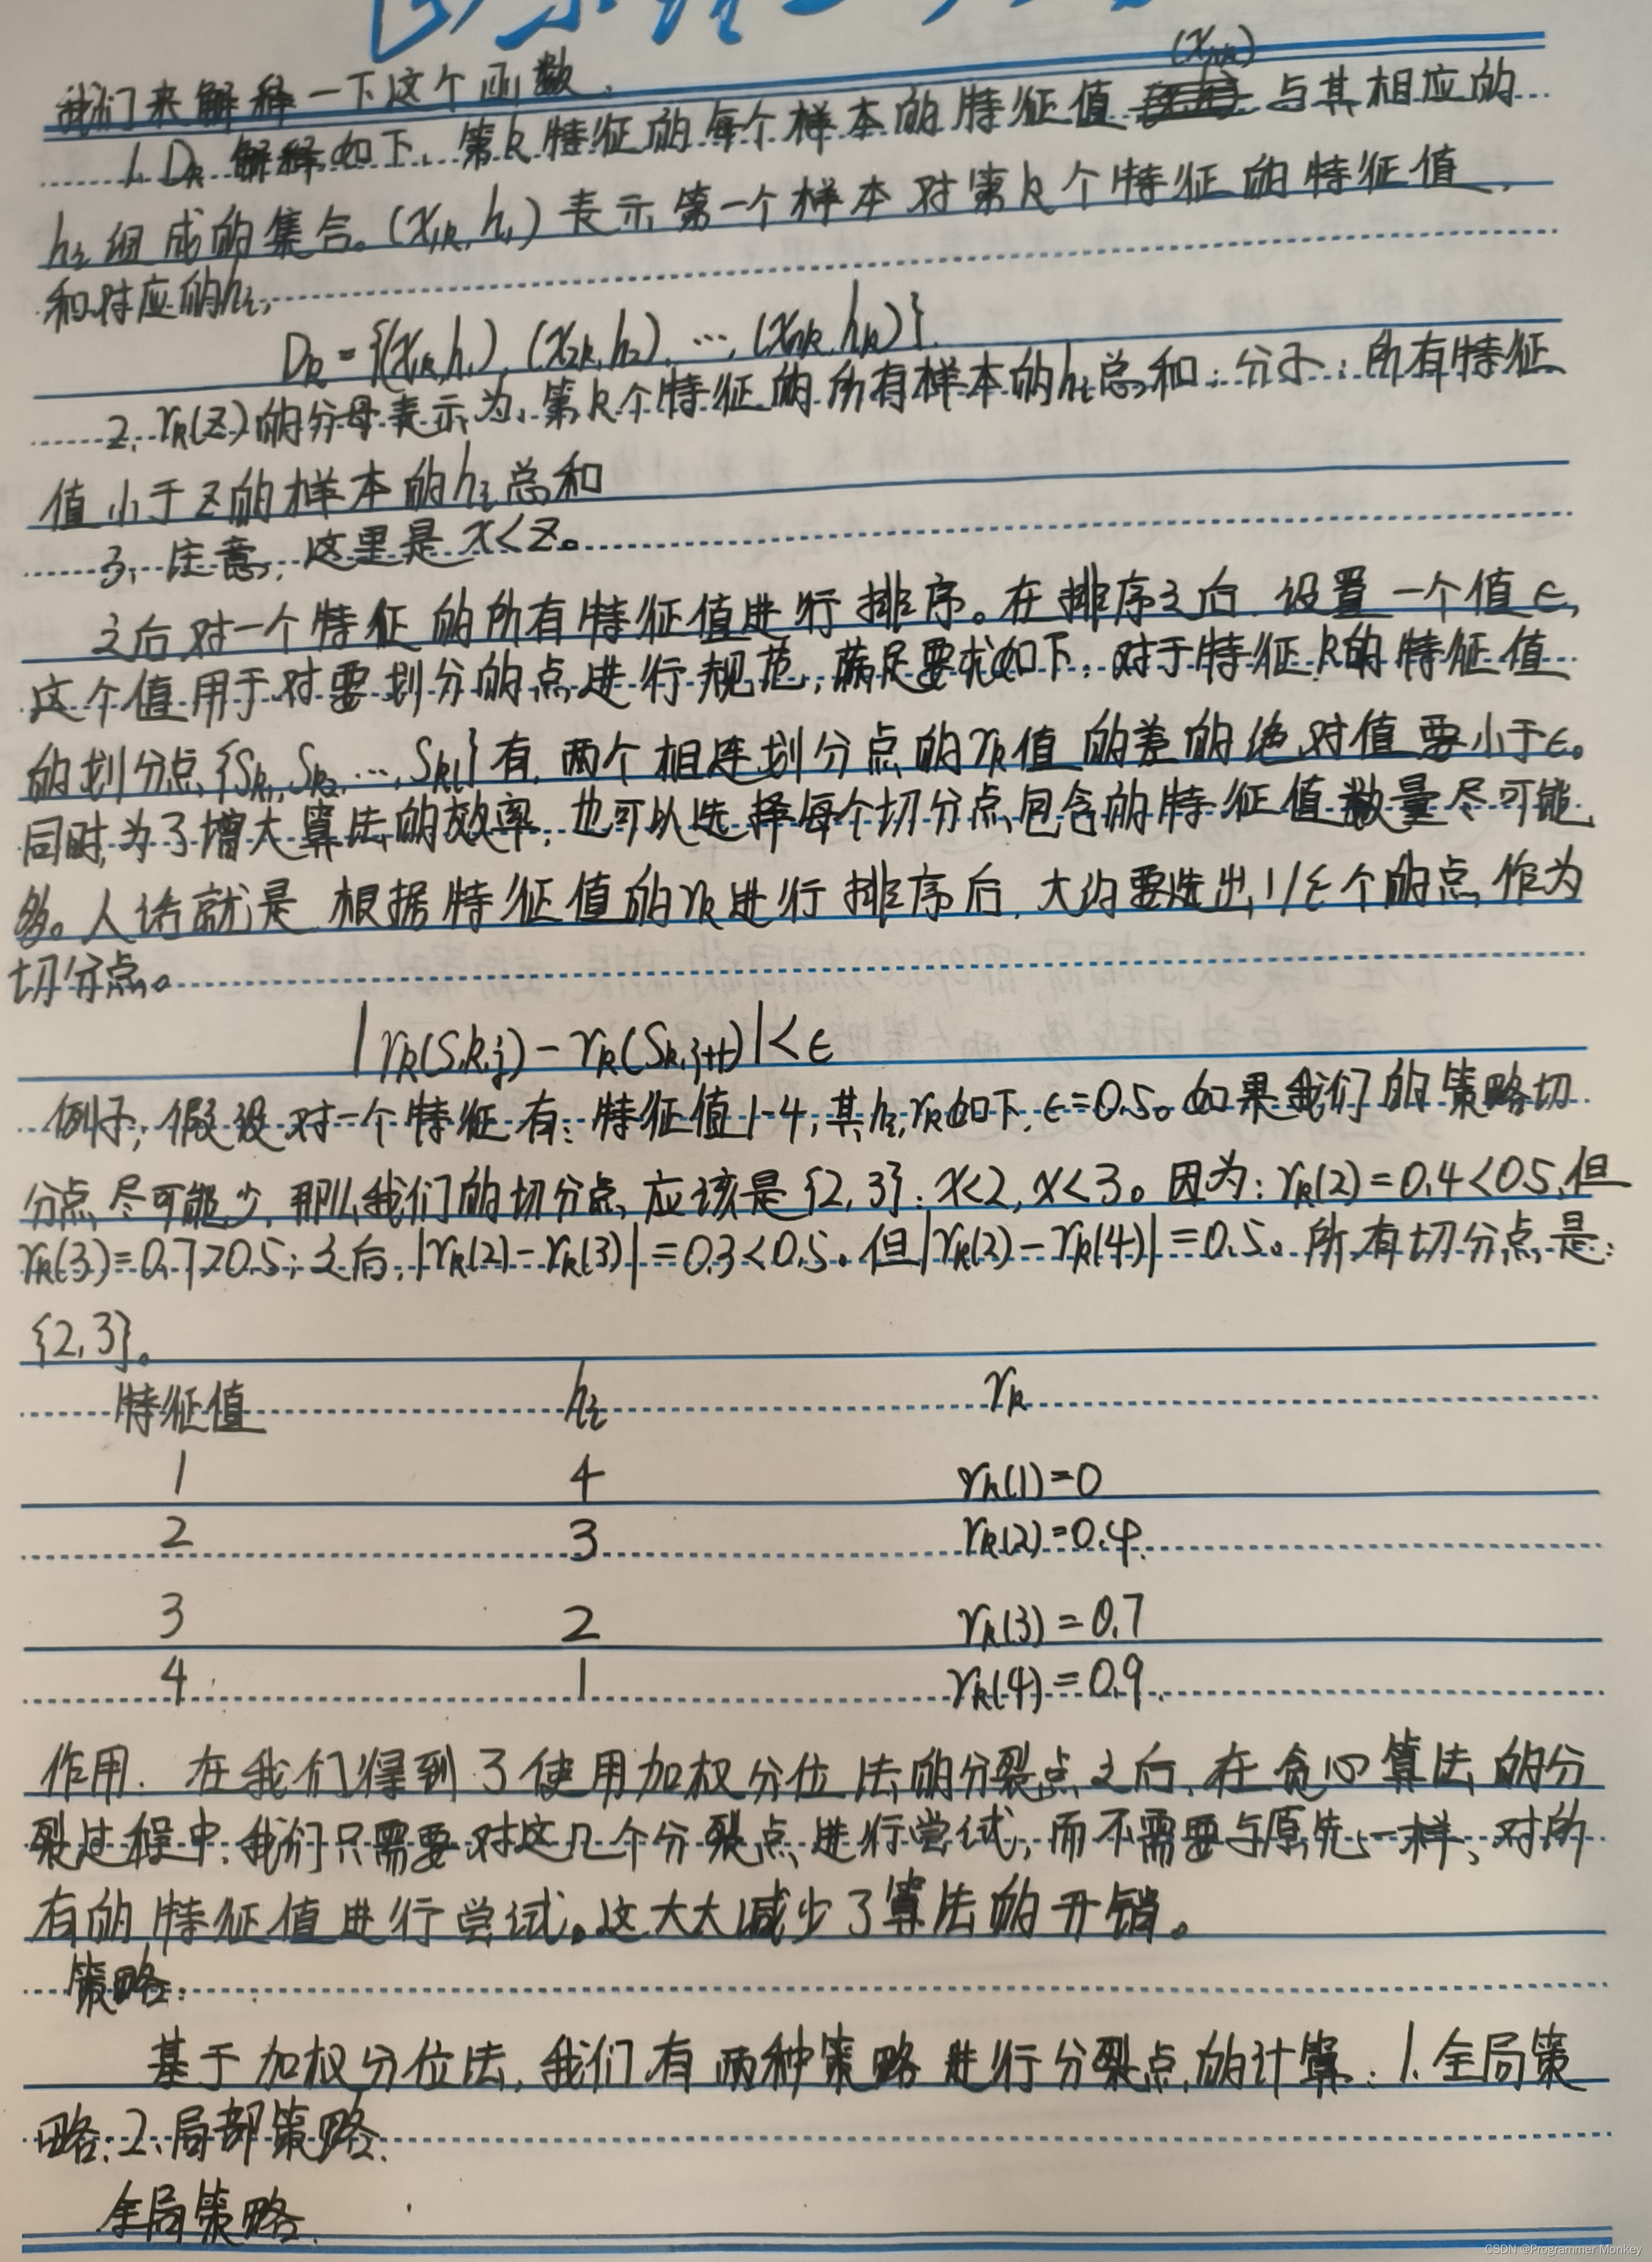 (x₁ₖ)
我们来解释一下这个函数.
1. Dₖ 解释如下. 第k特征的每个样本的特征值 与其相应的
hᵢ组成的集合。(x₁ₖ, h₁) 表示第一个样本对第k个特征的特征值,
和对应的hᵢ,
Dₖ = {(x₁ₖ,h₁), (x₂ₖ,h₂), …, (xₙₖ,hₖ)}.
2. rₖ(z)的分母表示为, 第k个特征的所有样本的hᵢ总和; 分子: 所有特征
值小于z的样本的hᵢ总和
3, 注意, 这里是x<z。
之后,对一个特征的所有特征值进行排序。在排序之后, 设置一个值ϵ,
这个值用于对要划分的点进行规范, 满足要求如下: 对于特征k的特征值
的划分点,{Sₖ₁,Sₖ₂,…,Sₖₗ}有, 两个相连划分点的rₖ值的差的绝对值要小于ϵ。
同时,为了增大算法的效率, 也可以选择每个切分点包含的特征值数量尽可能
多。人话就是 根据特征值的rₖ进行排序后, 大约要选出1/ϵ个的点,作为
切分点。
|rₖ(Sₖ,ⱼ) - rₖ(Sₖ,ⱼ₊₁)| < ϵ
例子, 假设对一个特征有: 特征值1-4, 其hᵢ,rₖ如下, ϵ=0.5。如果我们的策略切
分点尽可能少, 那么我们的切分点应该是{2,3}: x<2, x<3。因为: rₖ(2)=0.4<0.5,但
rₖ(3)=0.7>0.5; 之后, |rₖ(2)-rₖ(3)|=0.3<0.5。但|rₖ(2)-rₖ(4)|=0.5。所有切分点是:
{2,3}。
特征值 hᵢ rₖ
1 4 rₖ(1)=0
2 3 rₖ(2)=0.4
3 2 rₖ(3)=0.7
4 1 rₖ(4)=0.9
作用. 在我们得到了使用加权分位法的分裂点之后, 在贪心算法的分
裂过程中, 我们只需要对这几个分裂点进行尝试, 而不需要与原先一样, 对的
有的特征值进行尝试。这大大减少了算法的开销。
策略:
基于加权分位法, 我们有两种策略进行分裂点的计算: 1. 全局策
略; 2. 局部策略.
全局策略.
CSDN @Programmer Monkey